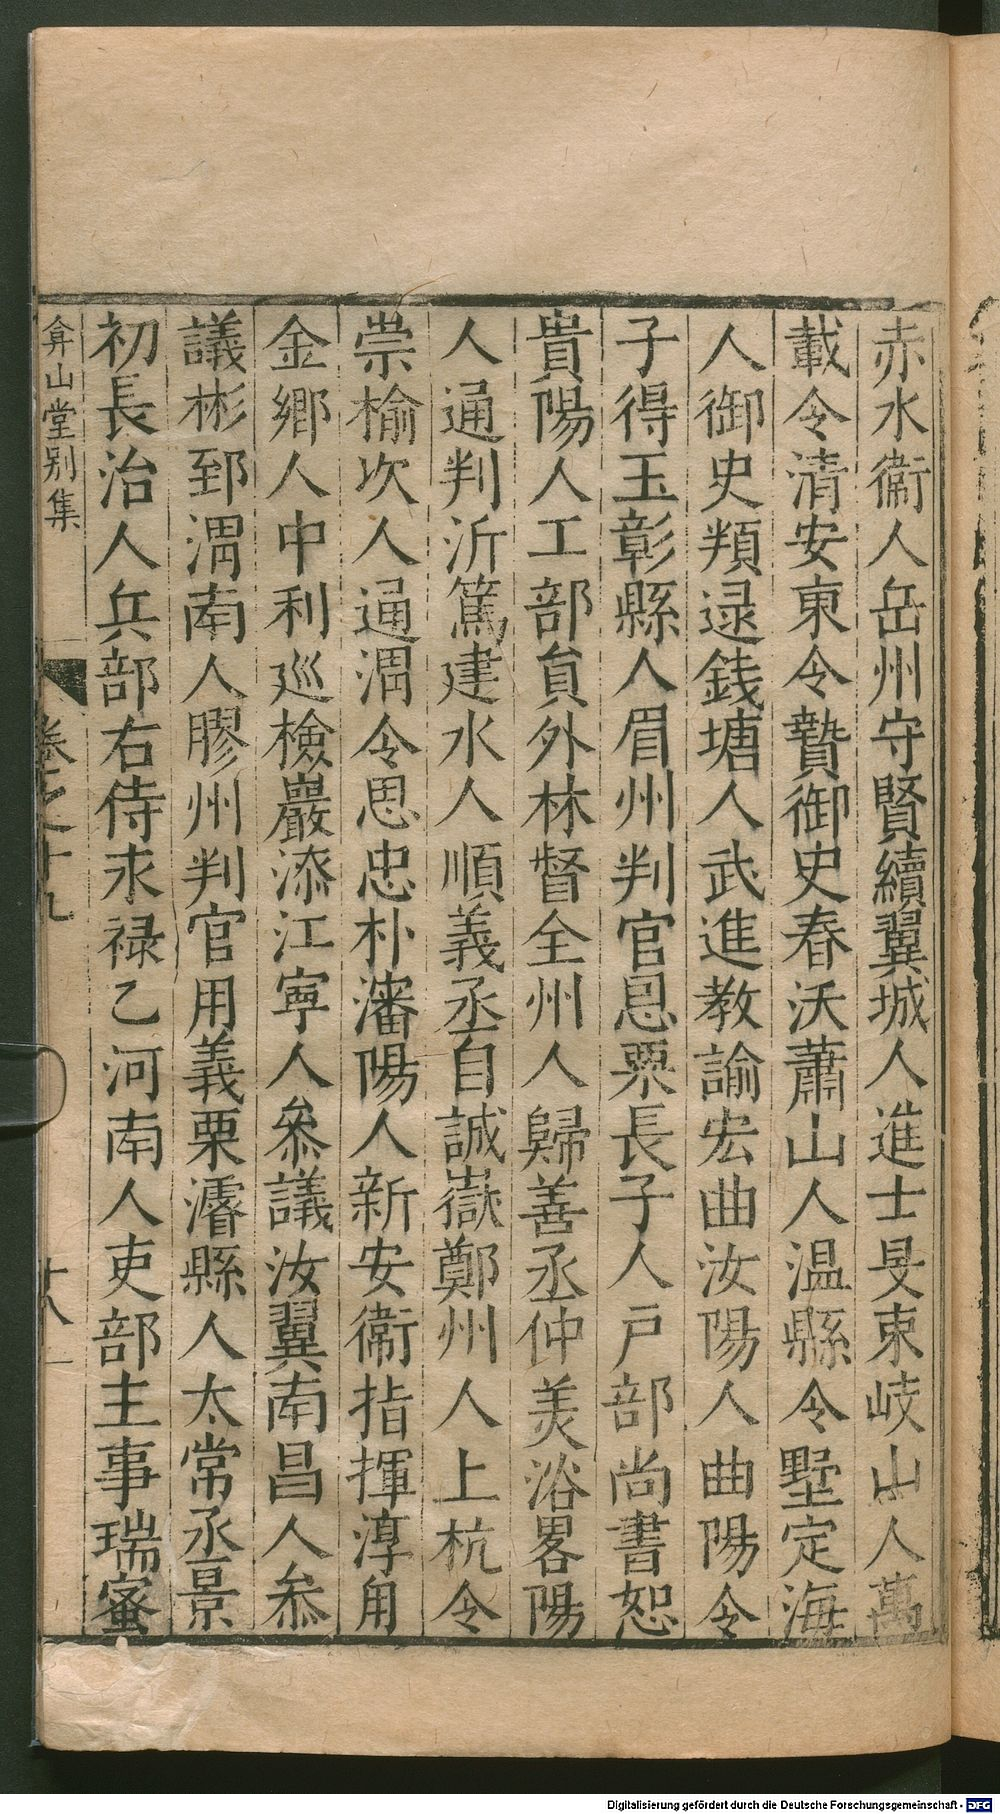 赤水衞人岳州守賢續翼城人進士旻東岐山人萬
載令清安東令贄御史春沃蕭山人温縣令墅定海
人御史㒵逯錢塘人武進教諭宏曲汝陽人曲陽令
子得玉彰縣人眉州判官恩栗長子人戸部尚書恕
貴陽人工部貟外林督全州人歸善丞仲羙浴畧陽
人通判沂篤建水人順義丞自誠嶽鄭州人上杭令
崇榆次人通渭令思忠朴瀋陽人新安衞指揮淳用
金鄉人中利巡檢巖添江寧人叅議汝翼南昌人叅
議彬郅渭南人膠州判官用義栗濬縣人太常丞景
初長治人兵部右侍求禄乙河南人吏部主事瑞蜜
弇山堂别集
卷之十九
十八
Digitalisierung gefördert durch die Deutsche Forschungsgemeinschaft - DFG